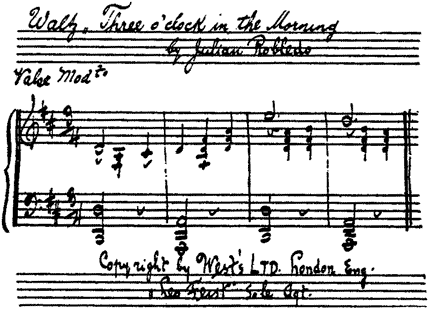 Waltz, Three o'clock in the Morning
by Julian Robledo
Valse Modto
3 4
3 4
Copyright by West's LTD. London Eng.
"Leo Feist" Sole Agt.